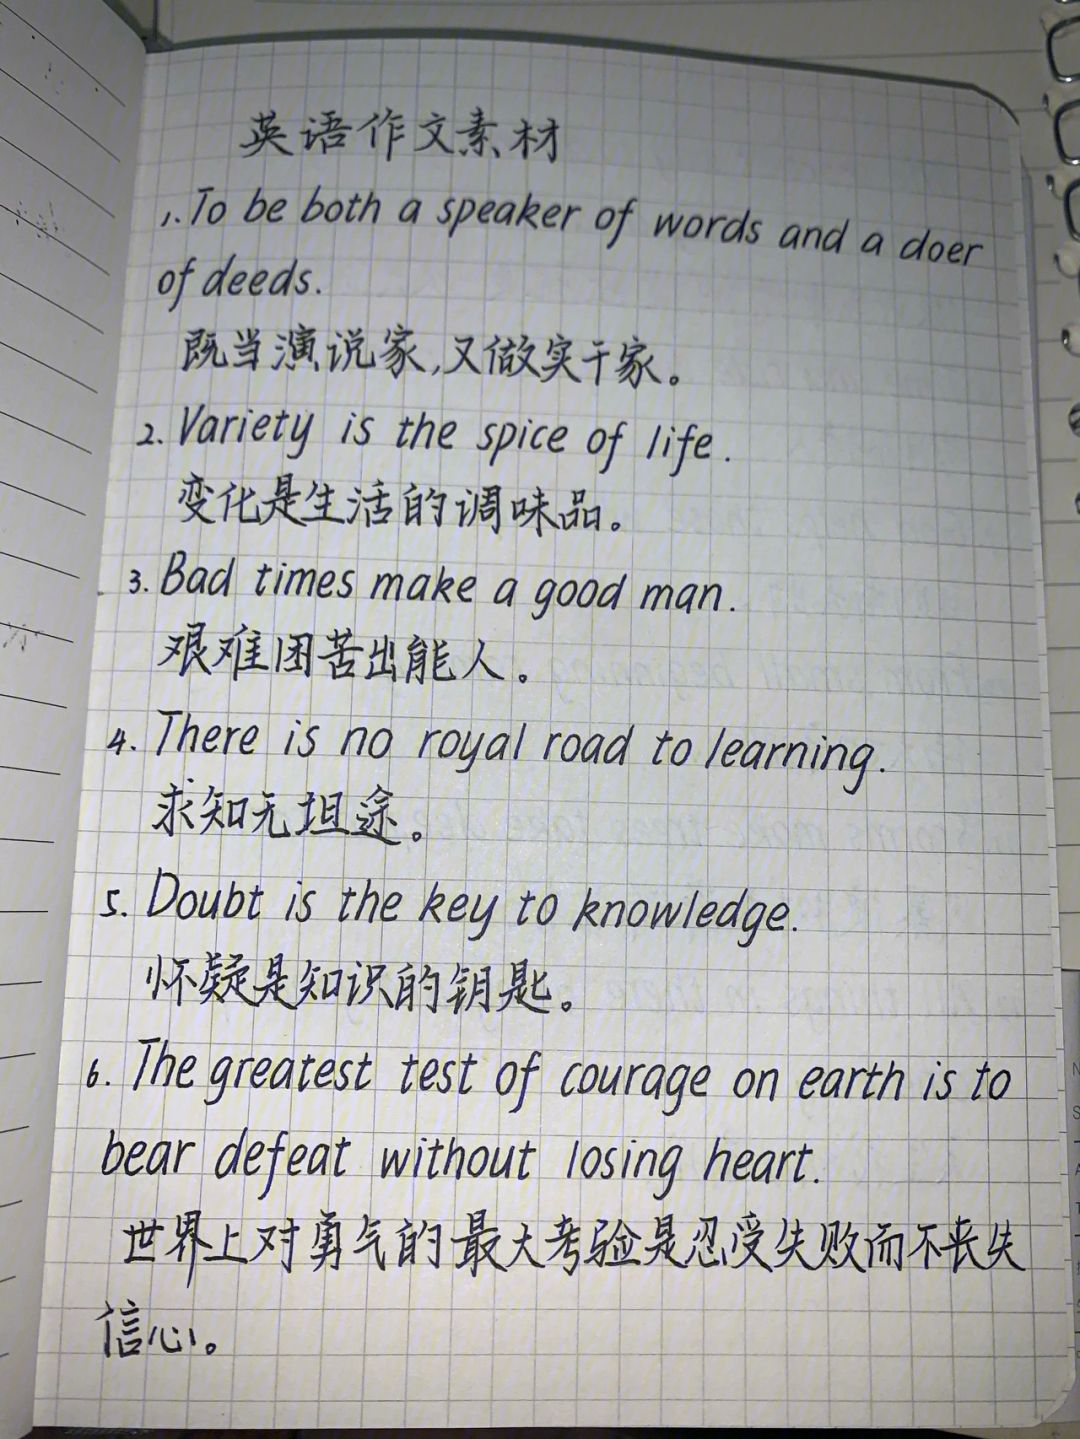 英语作文素材
1. To be both a speaker of words and a doer
of deeds.
既当演说家,又做实干家。
2. Variety is the spice of life.
变化是生活的调味品。
3. Bad times make a good man.
艰难困苦出能人。
4. There is no royal road to learning.
求知无坦途。
5. Doubt is the key to knowledge.
怀疑是知识的钥匙。
6. The greatest test of courage on earth is to
bear defeat without losing heart.
世界上对勇气的最大考验是忍受失败而不丧失
信心。